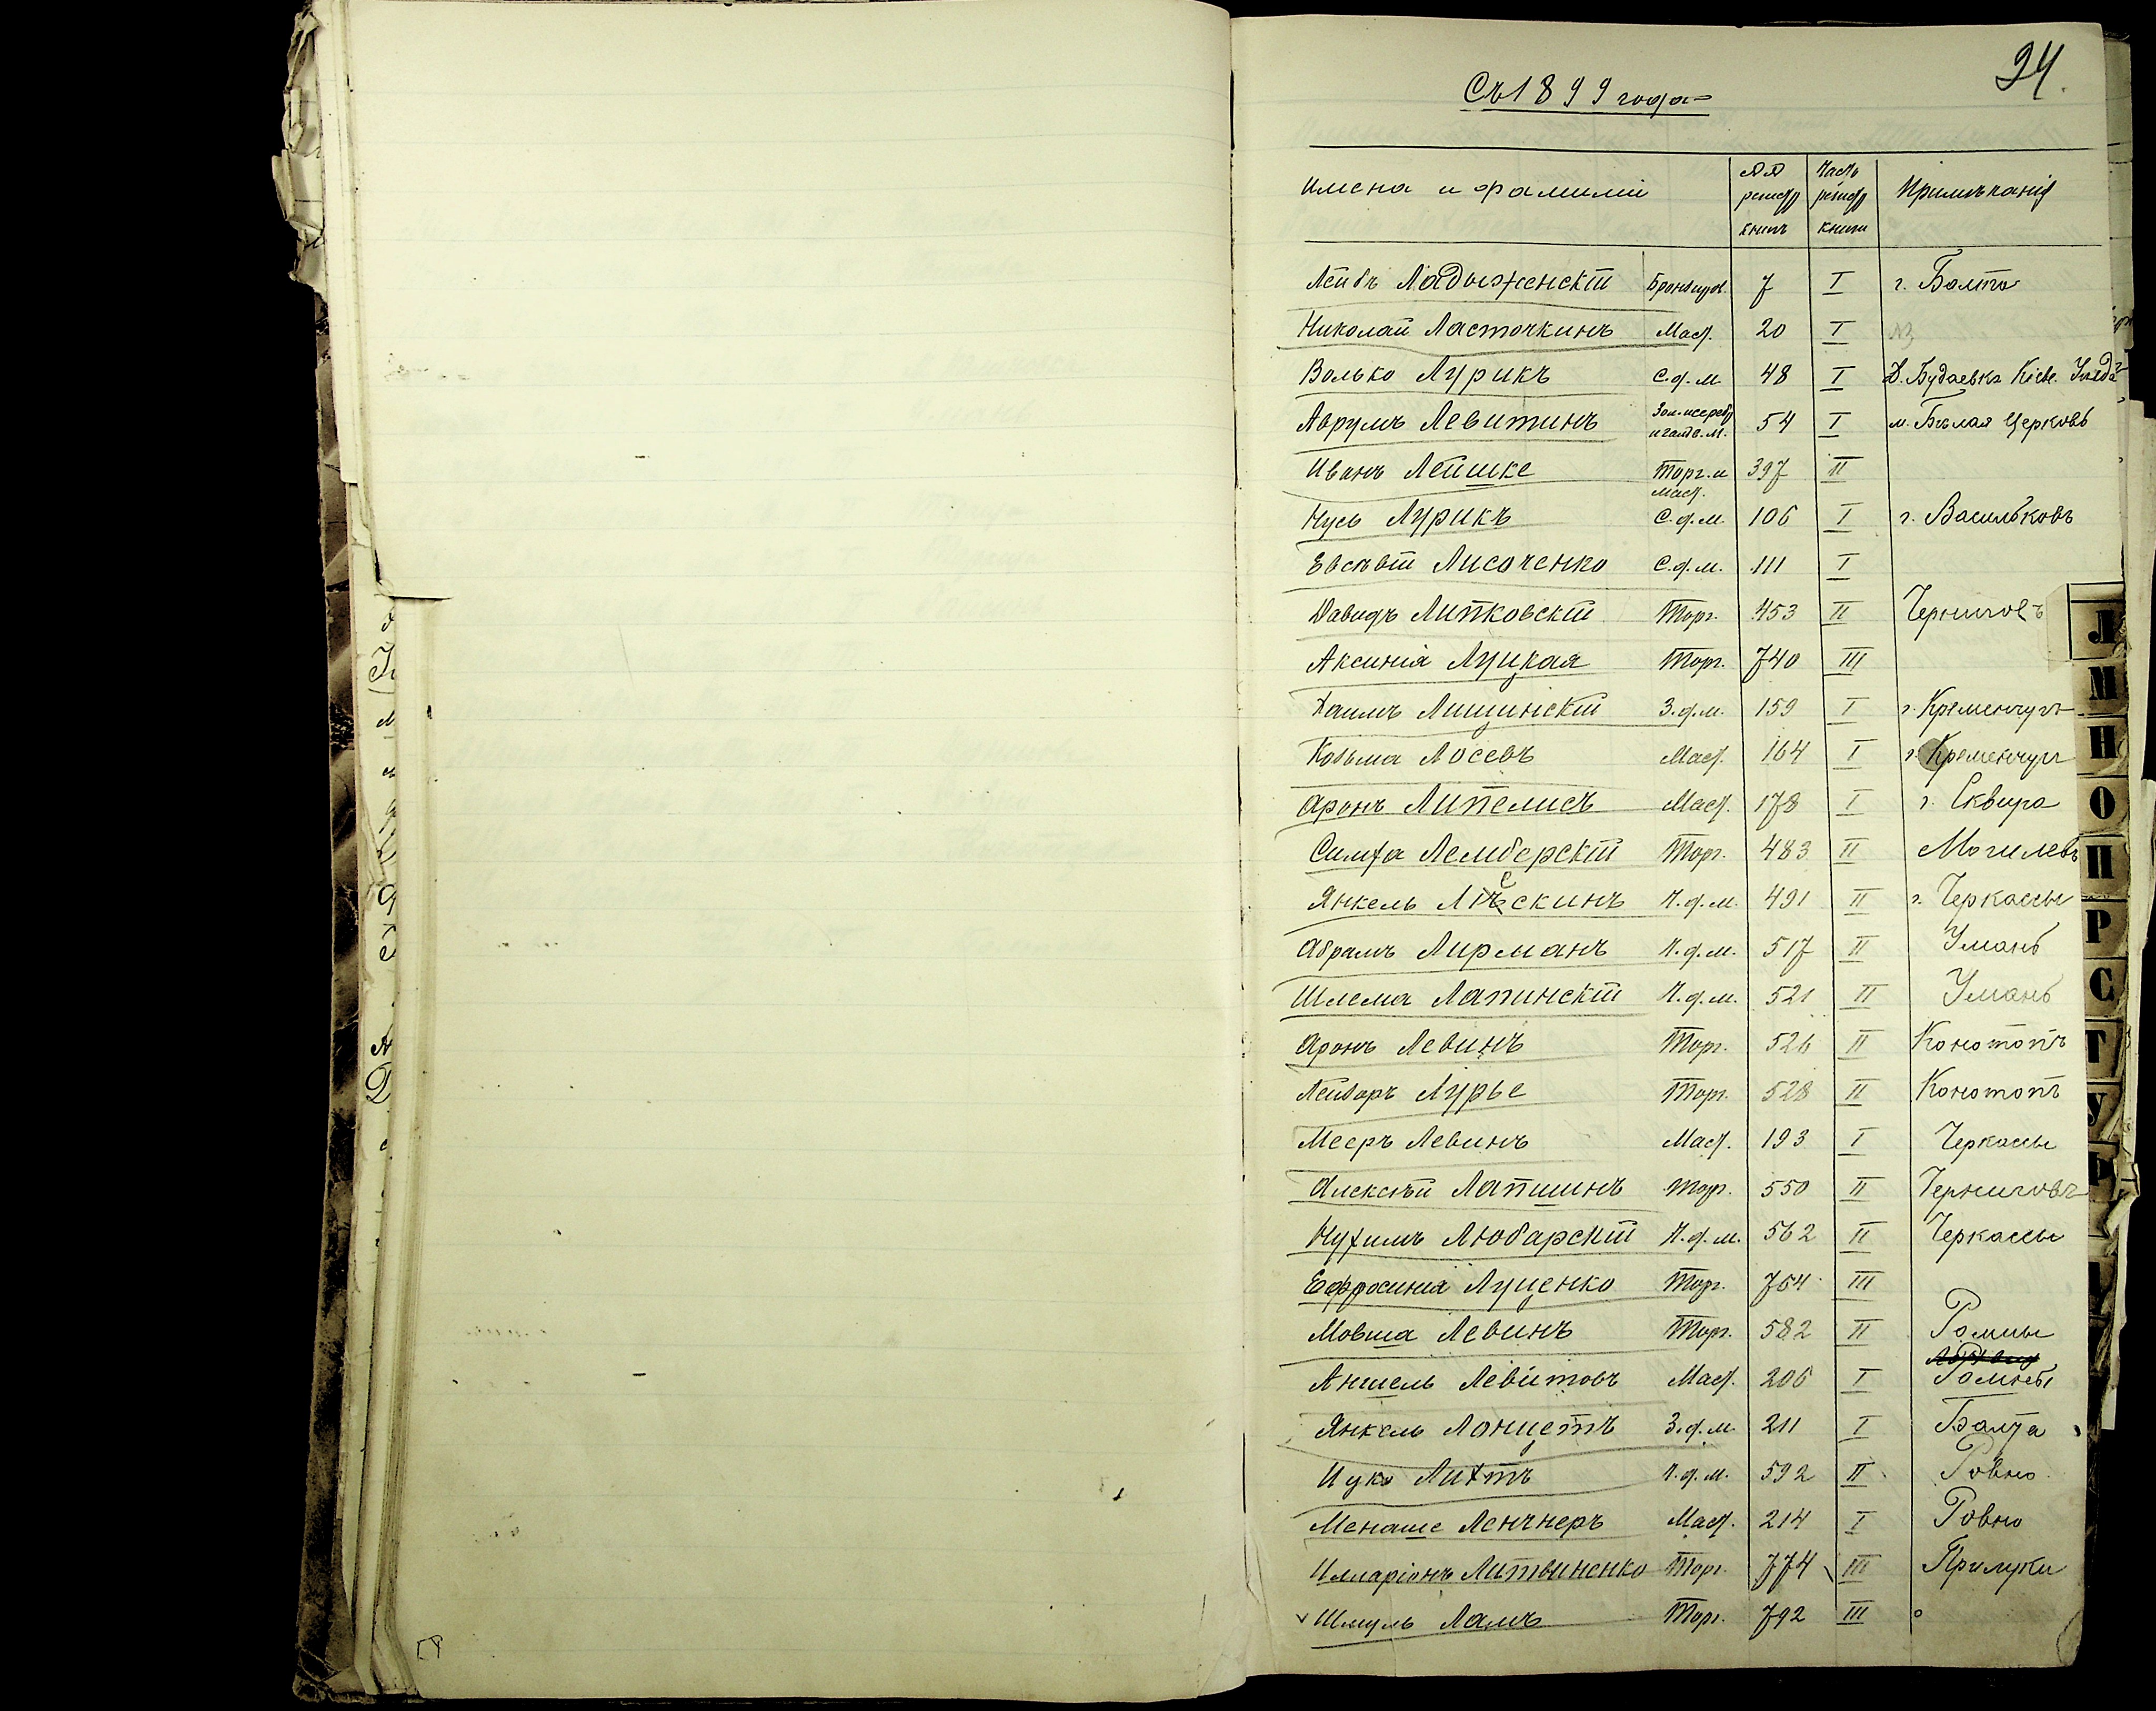 24.
Съ 1899 года
Имена и фамиліи №№ регистр книги Часть регистр книги Примѣчанія
Лейбъ Ладыженскій Бронзир. 7 I г. Балта
Николай Ласточкинъ Маст. 20 I
Волько Лурикъ С.д.м. 48 I Д. Будаевка Кіев. Уѣзда
Аврумъ Левитинъ Зол. и сереб. 54 I м. Бѣлая Церковь
Иванъ Лейшке Торг. и маст. 397 II
Нусь Лурикъ С.д.м. 106 I г. Васильковъ
Евсѣвій Лисоченко С.д.м. 111 I
Давидъ Липковскій Торг. 453 II Черниговъ
Аксинія Луцкая Торг. 740 III
Хаимъ Лищинскій З.д.м. 159 I г. Кременчугъ
Козьма Лосевъ Маст. 164 I г. Кременчугъ
Аронъ Липелисъ Маст. 178 I г. Сквира
Симха Лемберскій Торг. 483 II Могилевъ
Янкель Лескинъ Ч.д.м. 491 II г. Черкассы
Абрамъ Лирманъ Ч.д.м. 517 II Умань
Шлема Лапинскій Ч.д.м. 521 II Умань
Аронъ Левинъ Торг. 526 II Конотопъ
Лейзоръ Лурье Торг. 528 II Конотопъ
Мееръ Левинъ Маст. 193 I Черкассы
Алексѣй Лапшинъ Торг. 550 II Черниговъ
Нухимъ Любарскій Ч.д.м. 562 II Черкассы
Ефросинія Луценко Торг. 754 III
Мовша Левинъ Торг. 582 II Ромны
Аншель Левитовъ Маст. 206 I Ромны
Янкель Ланцетъ З.д.м. 211 I Балта
Ицко Лихтъ Ч.д.м. 592 II Ровно
Менаше Ленчнеръ Маст. 214 I Ровно
Илларіонъ Литвиненко Торг. 774 III Прилуки
Шмуль Ламъ Торг. 792 III
Л
М
Н
О
П
Р
С
Т
У